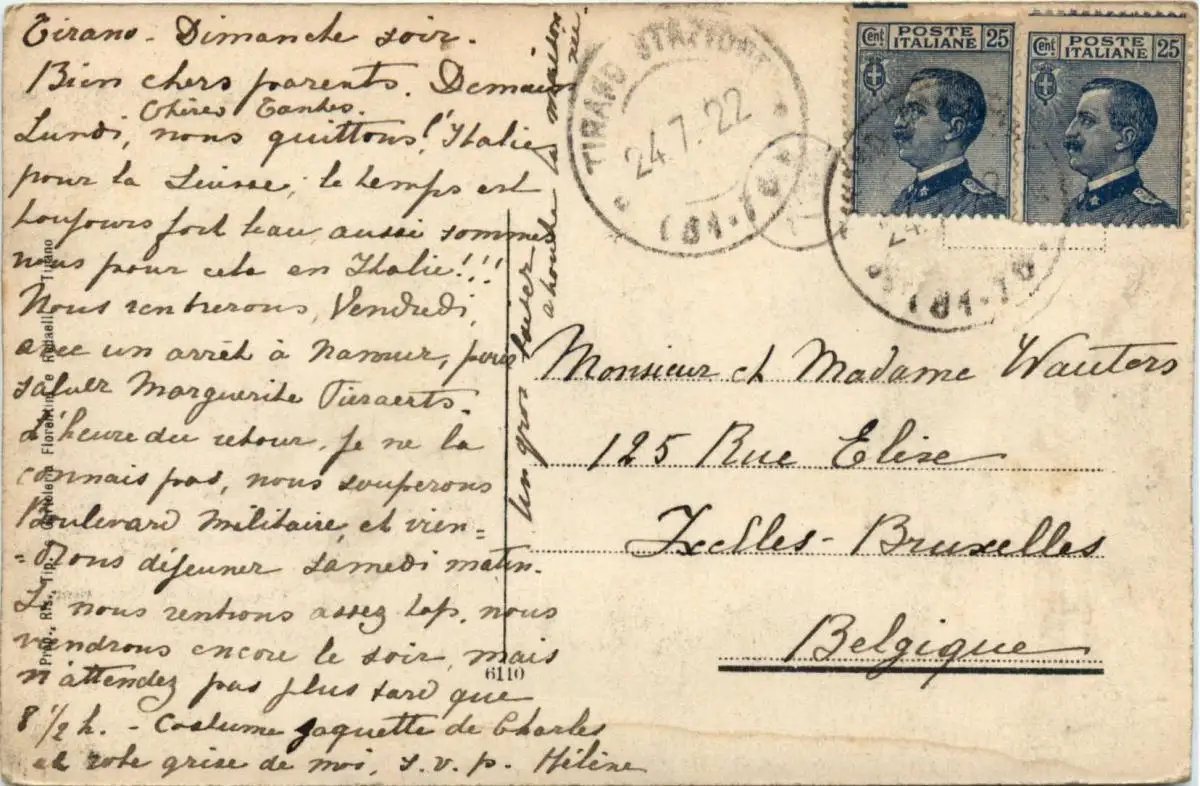 Tirano - Dimanche soir.
Bien chers parents. Demain
Chères Tantes.
Lundi, nous quittons l'Italie
pour la Suisse, le temps est
toujours fort beau aussi sommes
nous pour cela en Italie!!!
Nous rentrerons, Vendredi,
avec un arrêt à Namur, pour
saluer Marguerite Pieraerts.
L'heure du retour, je ne la
connais pas, nous souperons
Boulevard Militaire, et vien=
=drons déjeuner samedi matin.
Si nous rentrons assez tôt, nous
viendrons encore le soir, mais
n'attendez pas plus tard que
8 1/2 h. - Costume jaquette de Charles
et robe grise de moi, s.v.p. Hélène
Un gros baiser
à toute la maison
née.
Prop. Ris. Tip. e Florentini e Tirano
6110
TIRANO STAZIONE
24.7.22
POSTE
ITALIANE
Cent 25
POSTE
ITALIANE
Cent 25
Monsieur et Madame Wauters
125 Rue Elise
Ixelles - Bruxelles
Belgique